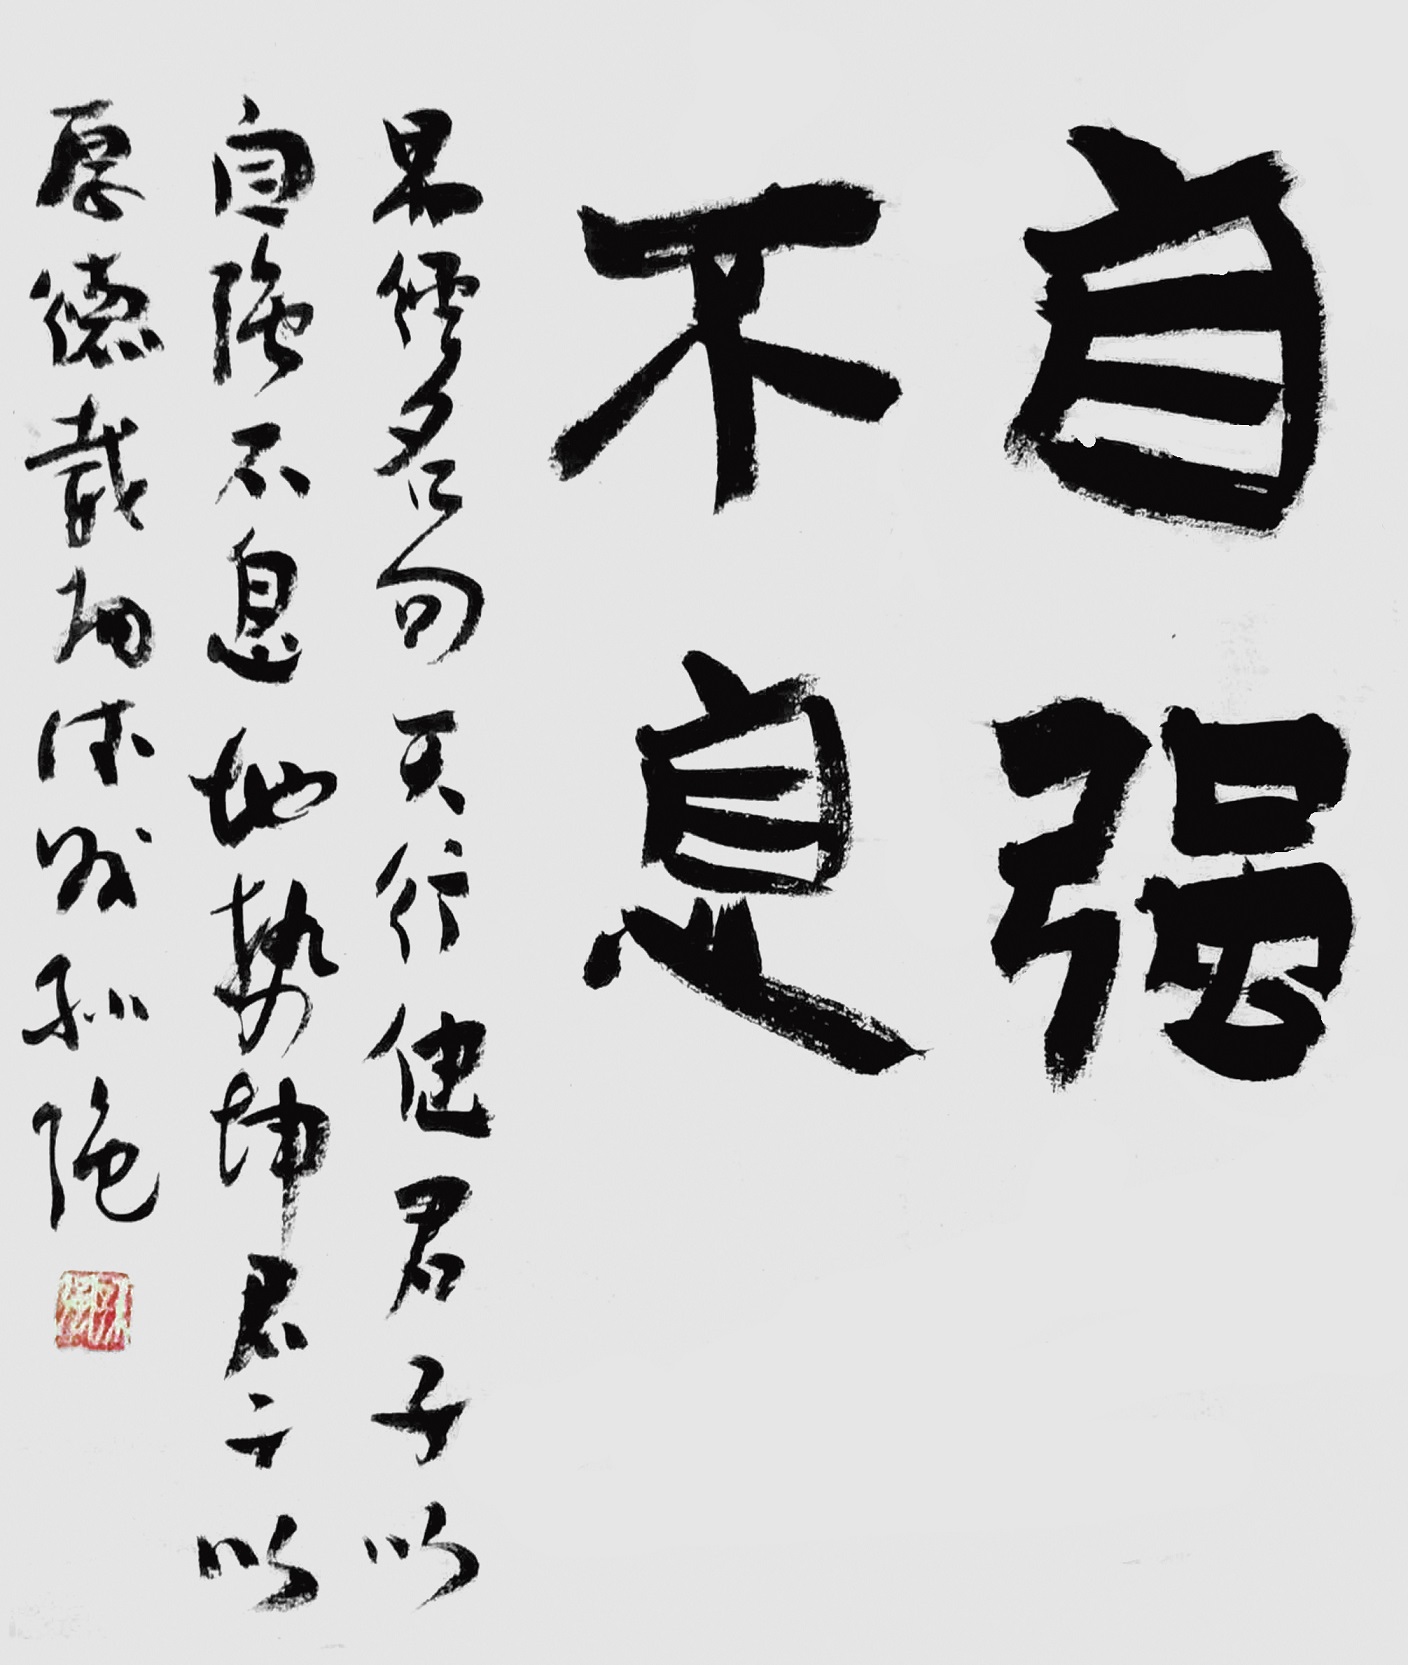 自强
不息
易经名句天行健君子以
自强不息地势坤君子以
厚德载物